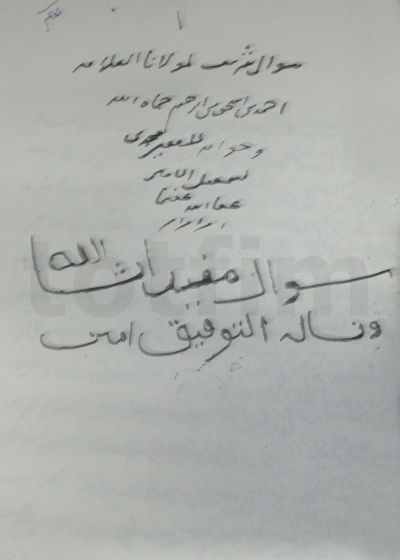 سوال شريف لمولانا العلامه
احمد بن اسحق بن ابرهيم حماه الله
وجوابه للفقير محمد بن
اسمعيل الامير
عفا الله عنهما
سوال مفيد ان شا الله
ونساله التوفيق امين
totfim